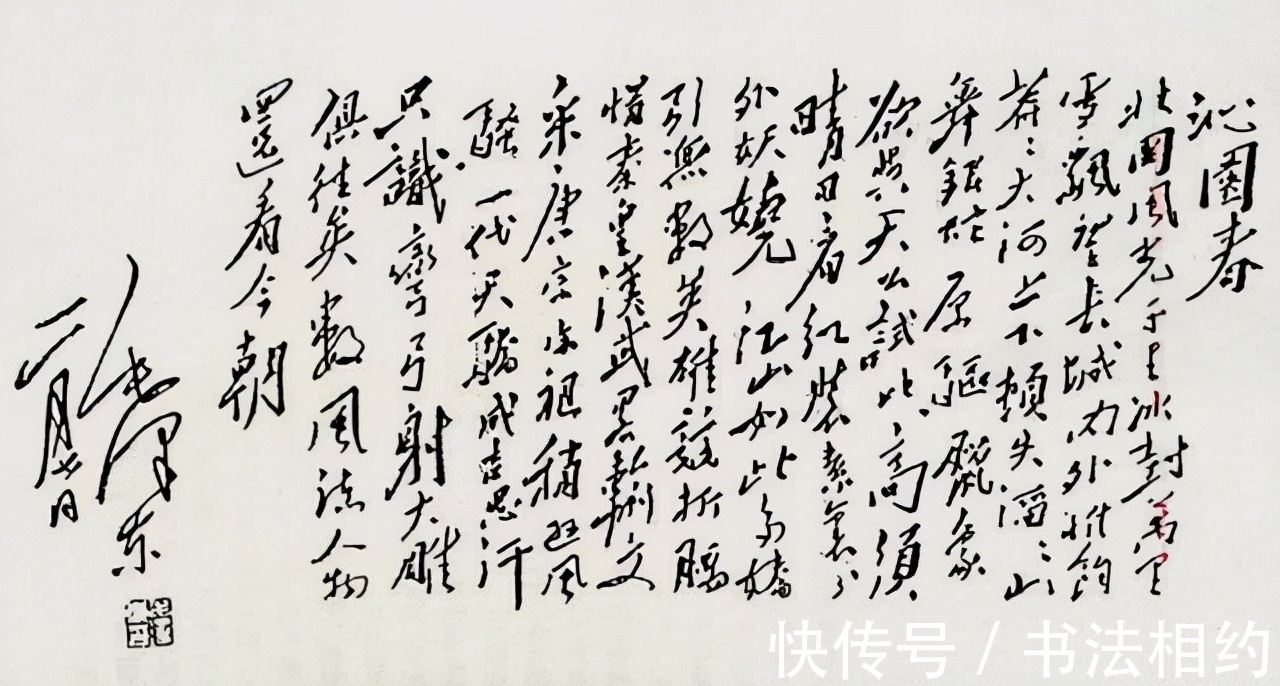 沁園春
北國風光千里冰封萬里
雪飄望長城内外惟餘
莽々大河上下頓失滔々山
舞銀蛇原驅臘象
欲與天公試比高須
晴日看紅裝素裹分
外妖嬈江山如此多嬌
引無數英雄競折腰
惜秦皇漢武略輸文
采唐宗宋祖稍遜風
騷一代天驕成吉思汗
只識彎弓射大雕
俱往矣數風流人物
還看今朝
毛澤東
快传号 / 书法相约